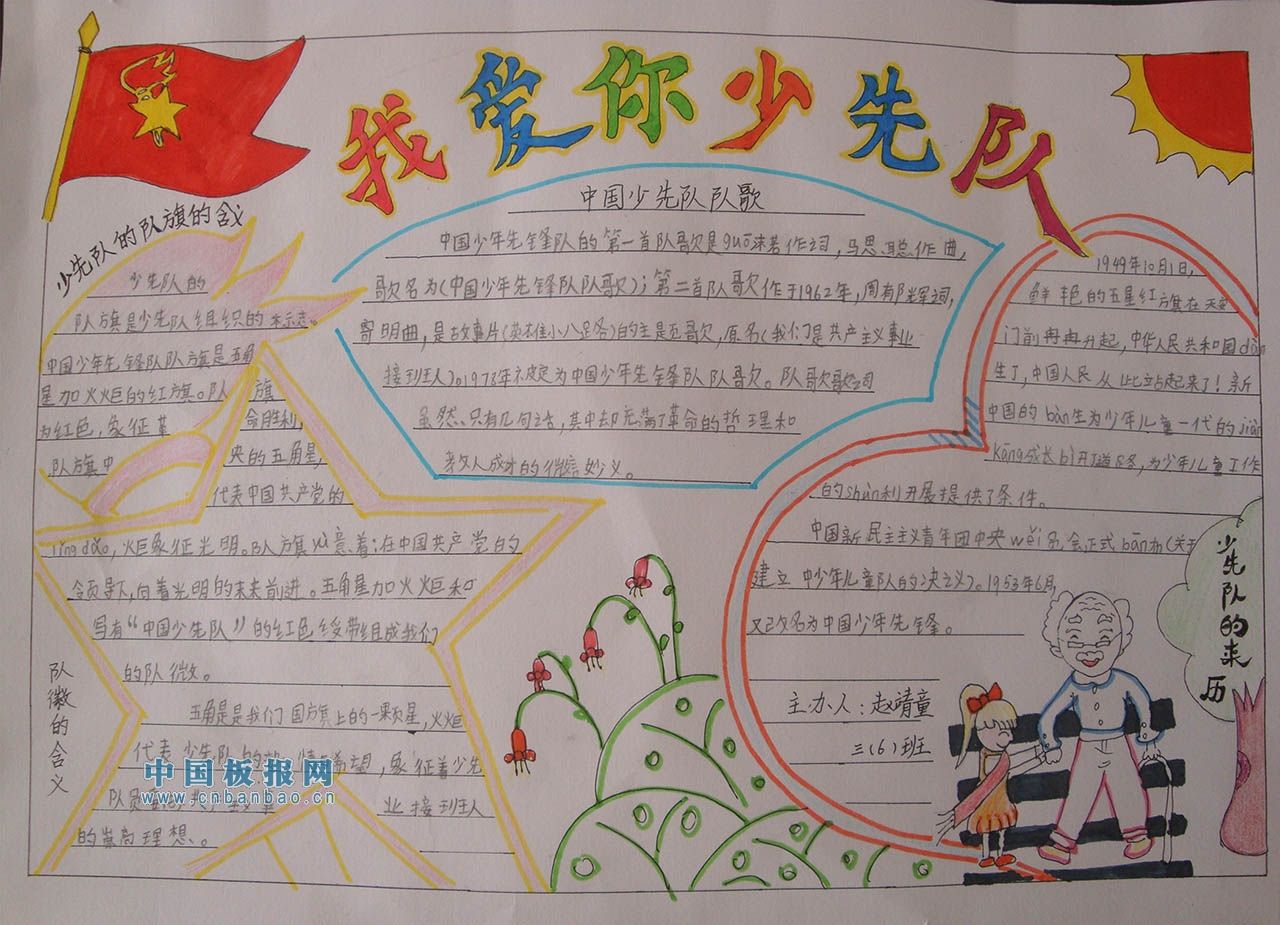 我爱你少先队
少先队的队旗的含义
少先队的
队旗是少先队组织的标志。
中国少年先锋队队旗是五角
星加火火巨的红旗。队旗
为红色，象征革命胜利，
队旗中央的五角星，
代表中国共产党的
lǐng dǎo，火巨象征光明。队旗yù意着：在中国共产党的
领导下，向着光明的未来前进。五角星加火炬和
写有“中国少先队”的红色绶带组成我们
的队微。
队徽的含义
五角是是我们国旗上的一颗星，火炬
代表少先队的
希望，象征着少先
队员
业接班人
的崇高理想。
中国板报网
www.cnbanbao.cn
中国少先队队歌
中国少年先锋队的第一首队歌是guō沫若作词，马思聪作曲，
歌名为（中国少年先锋队队歌）；第二首队歌作于1962年，周有阳军词，
寄明曲，是故事片（英雄小八路）的主是页歌，原名（我们是共产主义事业
接班人）。1978年被定为中国少年先锋队队歌。队歌歌词
虽然只有几句话，其中却充满了革命的哲理和
教人成才的微言妙义。
1949年10月1日，
鲜艳的五星红旗在天安
门前冉冉升起，中华人民共和国dàn
生了，中国人民从此站起来了！新
中国的bàn生为少年儿童一代的jiàn
kāng成长bì开道路，为少年儿童工作
的shùn利开展提供了条件。
中国新民主主义青年团中央wěi员会正式bān布（关于
建立中少年儿童队的决义）。1953年6月，
又改名为中国少年先锋。
少先队的来历
主办人：赵靖童
三（6）班